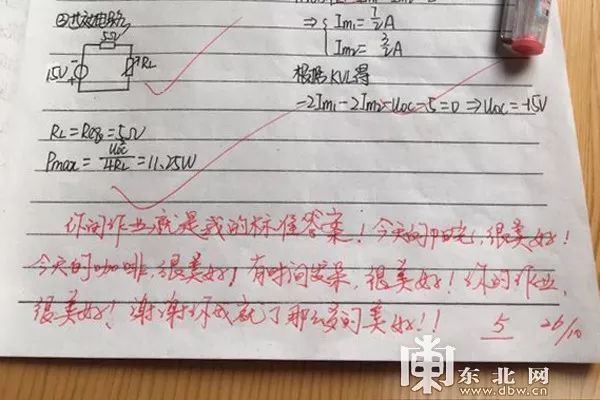 ⇒ { Im₁ = 7/2 A
Im₂ = 3/2 A
根据KVL得
-2Im₁-2Im₂-Uoc-5=0 ⇒ Uoc=-15V
5Ω
15V
RL
RL=Req=5Ω
Pmax = Uoc²/4RL = 11.25W
你的作业就是我的标准答案！今天的阳光，很美好！
今天的咖啡，很美好！有时间发呆，很美好！你的作业，
很美好！谢谢你成就了那么多的美好！！
5 26/10
东北网
www.dbw.cn